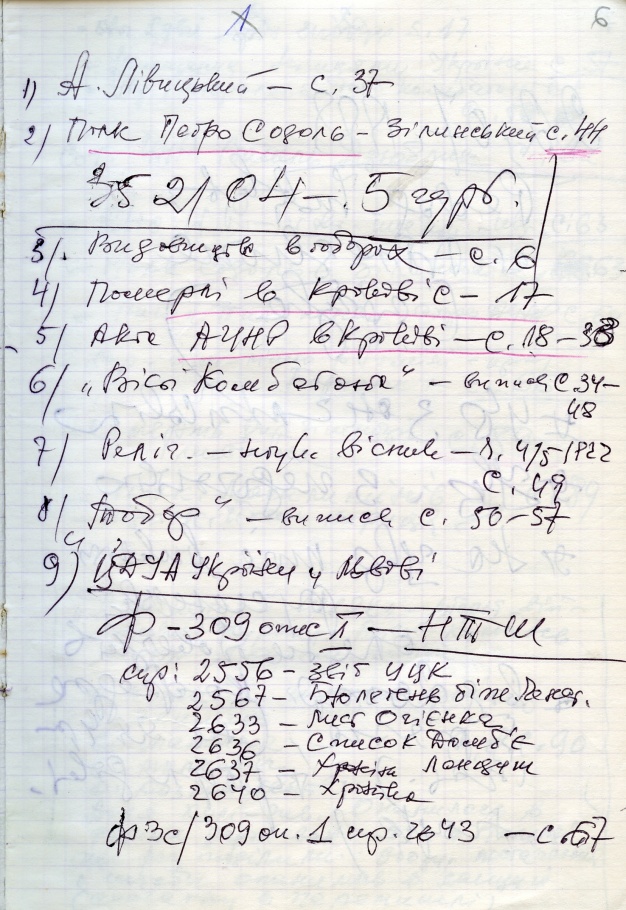 6
1) А. Лівицький — с. 37
2) Полк Петро Содоль — Зілинський с. 44
352104 — 5 груб.
3/. Видавництва в таборах — с. 6
4) Померлі в Кракові с — 17
5) Акта АУНР в Кракові — с. 18 — 33
6/ „Вісті Комбатанта" — виписи с. 34–
48
7/ Реліг. — наук. вісник — ч. 4/5 1922
с. 49
8/ „Табор" — виписи с. 50–57
9) ЦДІА України у Львові
Ф – 309 опис 1 — НТШ
спр: 2556 – звіт УЦК
2567 – Бюлетень біж.
2633 – Лист Огієнка
2636 – Список Домб'є
2637 – Хроніка Ланцут
2640 – Хроніка
ф 3с/309 оп. 1 спр. 2643 — с. 67